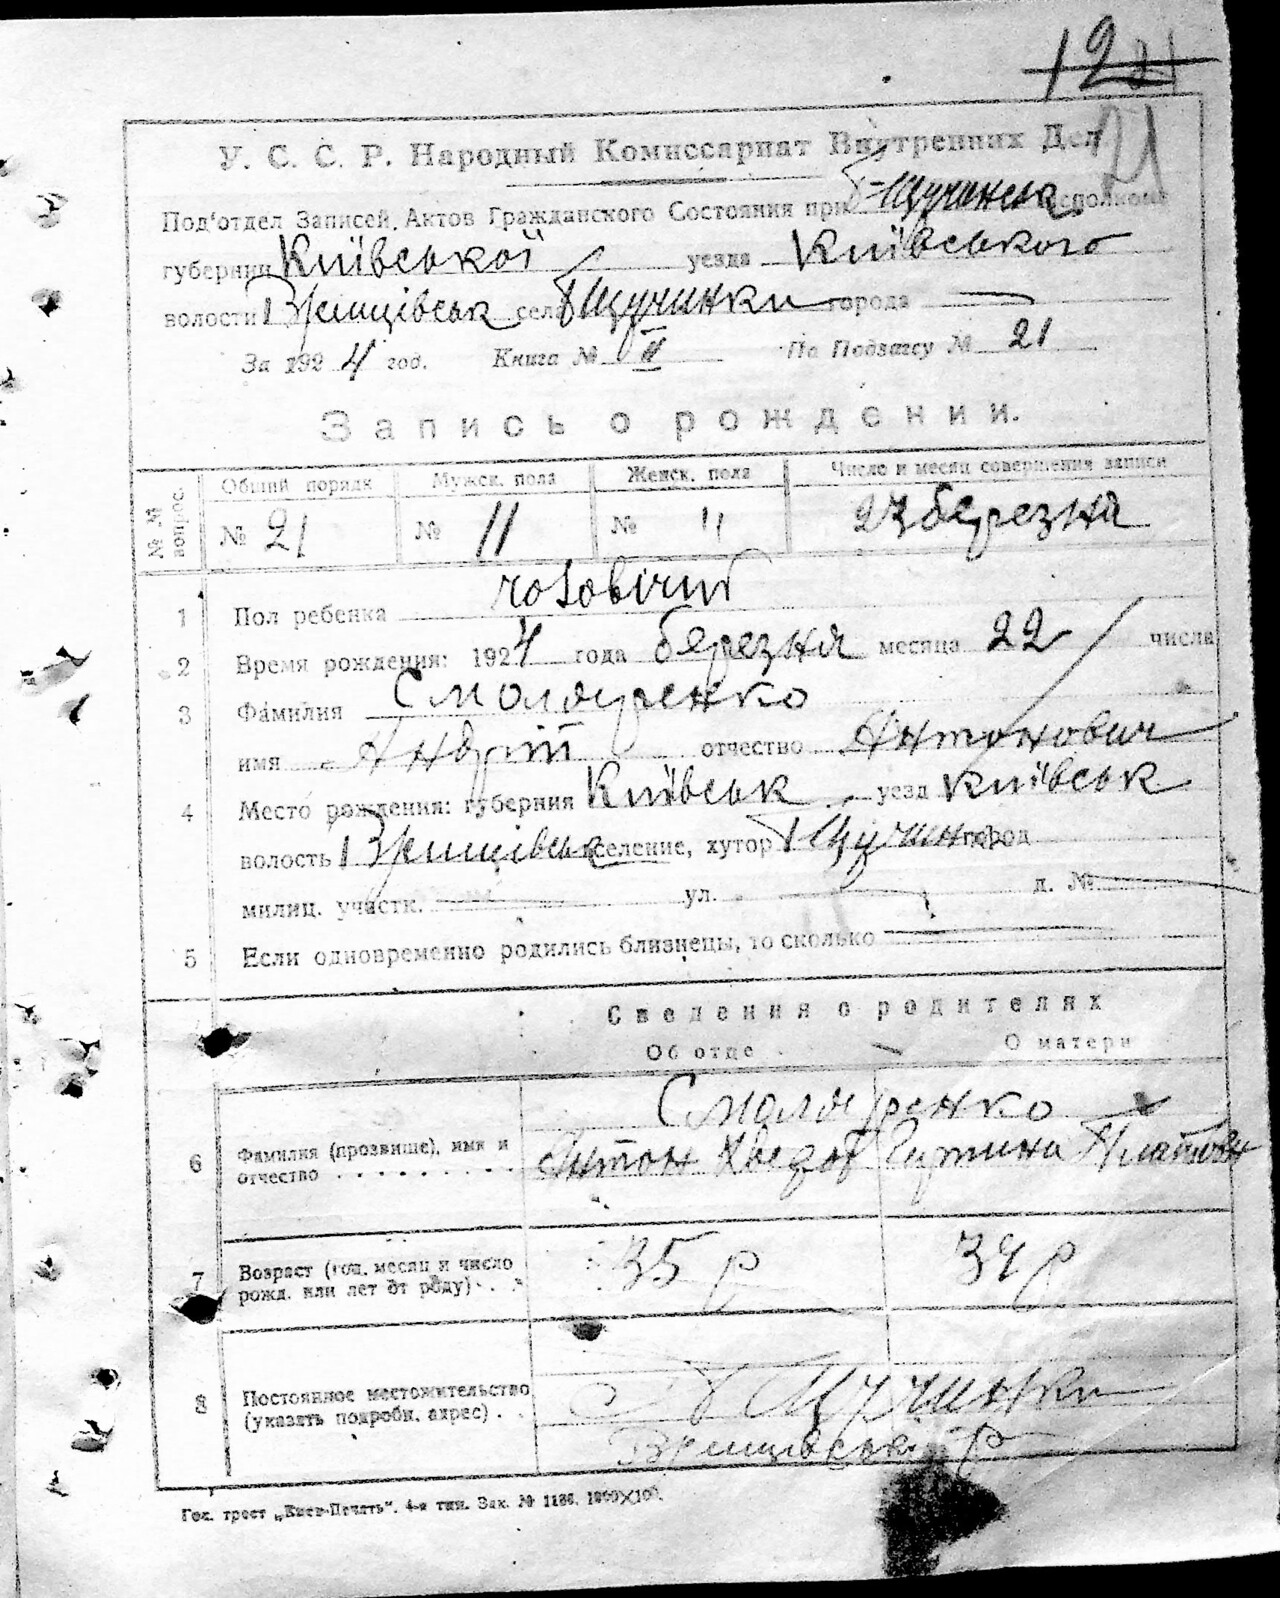 121
21
У. С. С. Р. Народный Комиссариат Внутренних Дел
Под'отдел Записей, Актов Гражданского Состояния при Б-Щучинськ исполкоме
губернии Київської уезда Київського
волости Ржищівськ села Б Щучинки города —
За 1924 год. Книга № II По Подзагсу № 21
Запись о рождении.
№ № вопрос. Общий порядк Мужск. пола Женск. пола Число и месяц совершения записи
№ 21 № 11 № " 27 березня
1 Пол ребенка чоловічий
2 Время рождения: 1924 года березня месяца 22 числа
3 Фамилия Смоляренко
имя Андрій отчество Антонович
4 Место рождения: губерния Київськ уезд Київськ
волость Ржищівськ селение, хутор Б Щучинк город
милиц. участк. — ул. — д. № —
5 Если одновременно родились близнецы, то сколько —
Сведения о родителях
Об отце О матери
Смоляренко
6 Фамилия (прозвище), имя и отчество . . . . . . . Антон Хведов Платовн
7 Возраст (год, месяц и число рожд. или лет от роду) . . . 35 р 34 р
8 Постоянное местожительство (указать подробн. адрес) . . с Б Щучинки
Ржищівськ р
Гос. трест „Киев-Печать". 4-я тип. Зак. № 1186. 1000×100.